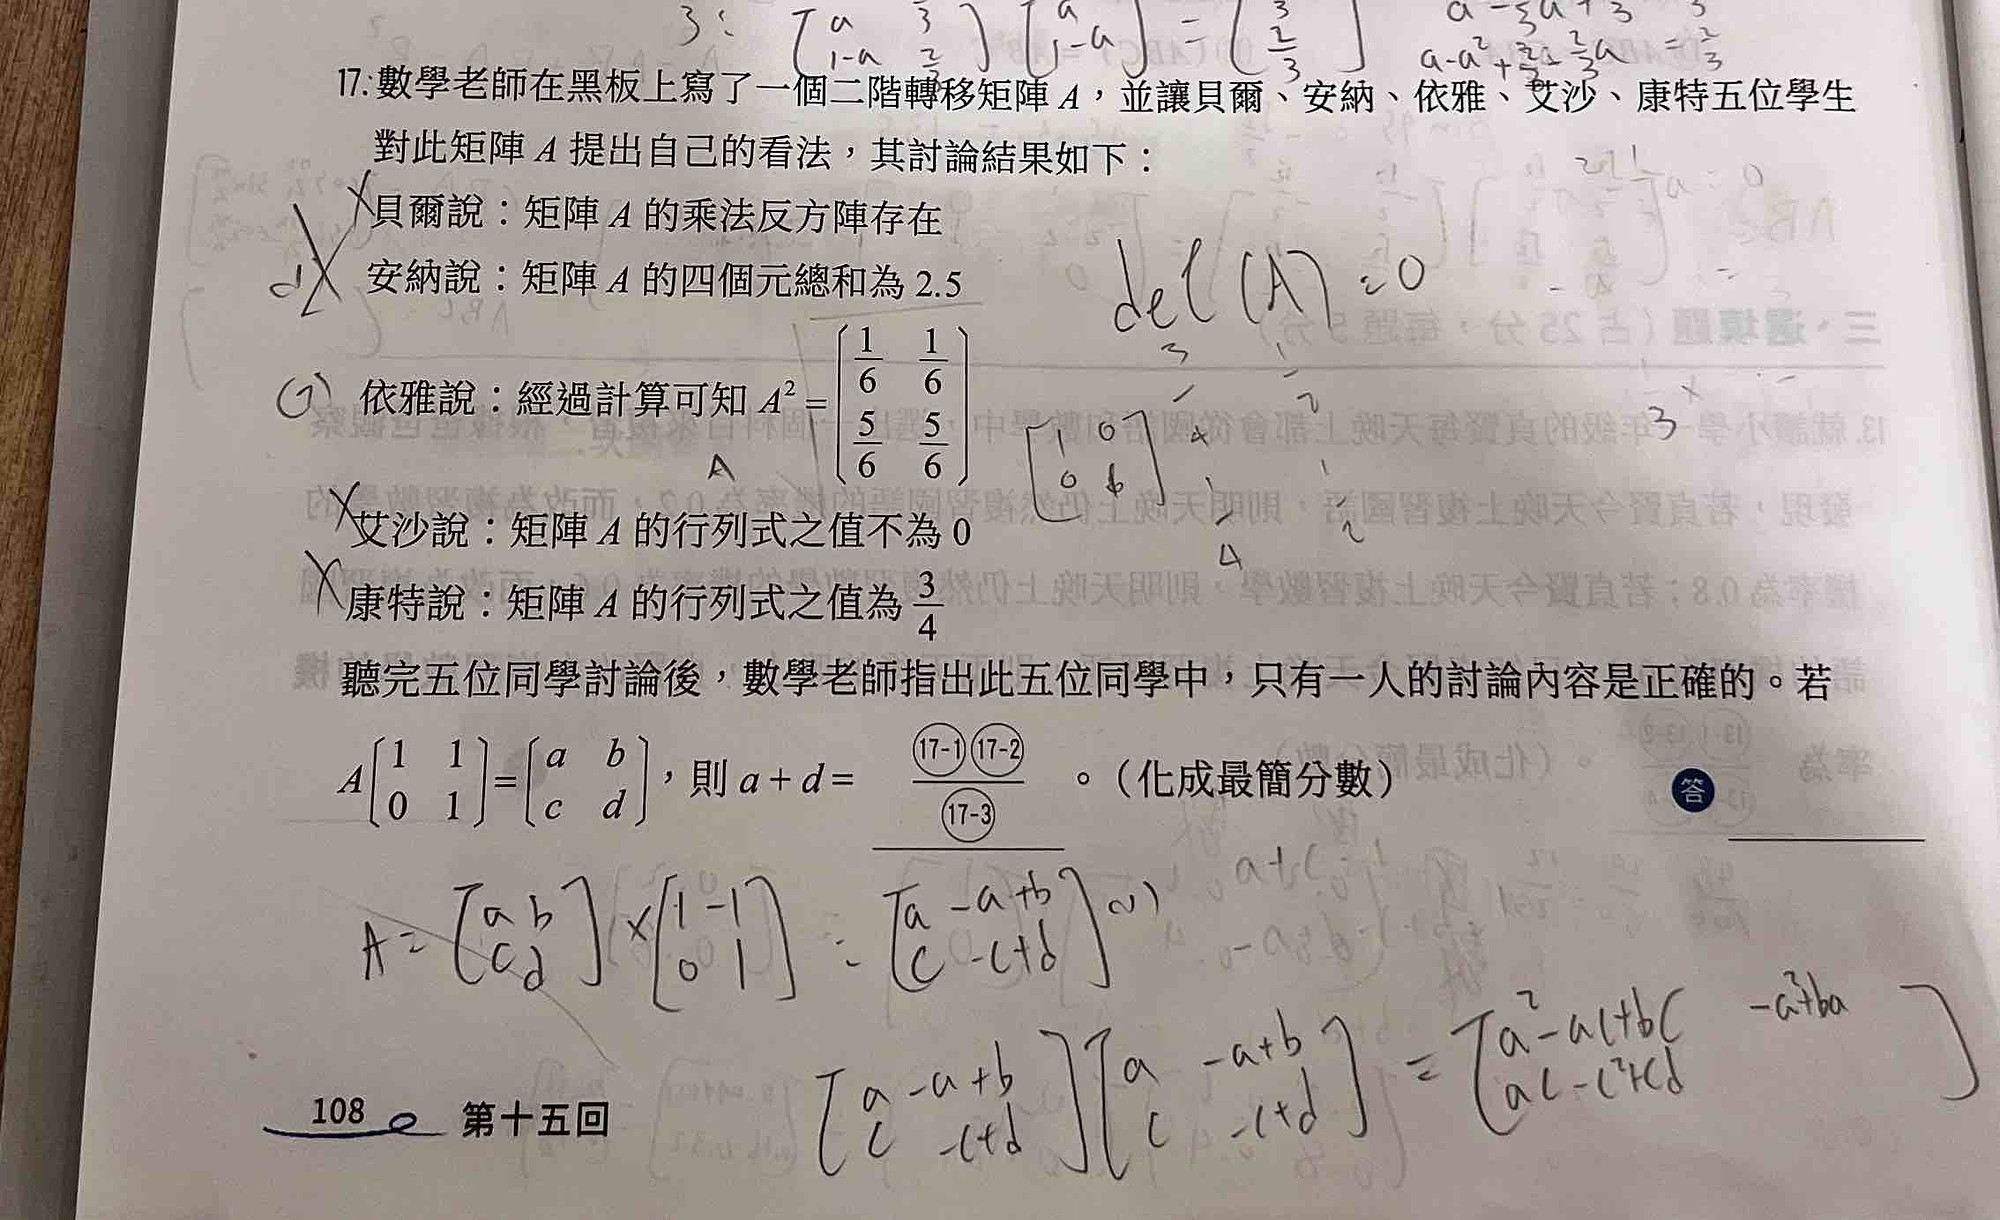 17. 數學老師在黑板上寫了一個二階轉移矩陣 A，並讓貝爾、安納、依雅、艾沙、康特五位學生
對此矩陣 A 提出自己的看法，其討論結果如下：
貝爾說：矩陣 A 的乘法反方陣存在
安納說：矩陣 A 的四個元總和為 2.5
det(A)=0
依雅說：經過計算可知 A² = [1/6 1/6; 5/6 5/6]
[1 0; 0 b]
艾沙說：矩陣 A 的行列式之值不為 0
康特說：矩陣 A 的行列式之值為 3/4
聽完五位同學討論後，數學老師指出此五位同學中，只有一人的討論內容是正確的。若
A[1 1; 0 1]=[a b; c d]，則 a + d = (17-1)(17-2)/(17-3)。（化成最簡分數）
答
A = [a b; c d] × [1 -1; 0 1] = [a -a+b; c -c+d]
[a -a+b; c -c+d][a -a+b; c -c+d] = [a²-ac+bc -a²+ba; ac-c²+cd]
108 第十五回